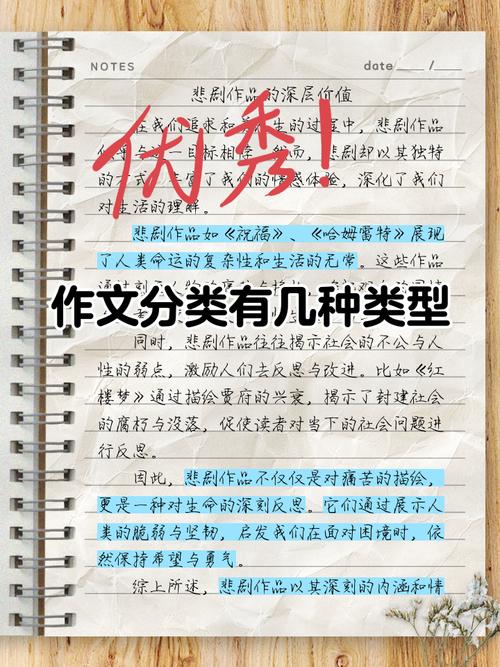 NOTES
date ___ / ___
悲剧作品的深层价值
在我们追求和 生的过程中，悲剧作品
似乎与 一目标相悖。然而，悲剧却以其独特
的方式，丰富了我们的情感体验，深化了我们
对生活的理解。
优秀！
悲剧作品如《祝福》、《哈姆雷特》展现
了人类命运的复杂性和生活的无常。这些作品
作文分类有几种类型
同时，悲剧作品往往揭示社会的不公与人
性的弱点，激励人们去反思与改进。比如《红
楼梦》通过描绘贾府的兴衰，揭示了封建社会
的腐朽与没落，促使读者对当下的社会问题进
行反思。
因此，悲剧作品不仅仅是对痛苦的描绘，
更是一种对生命的深刻反思。它们通过展示人
类的脆弱与坚韧，启发我们在面对困境时，依
然保持希望与勇气。
综上所述，悲剧作品以其深刻的内涵和情